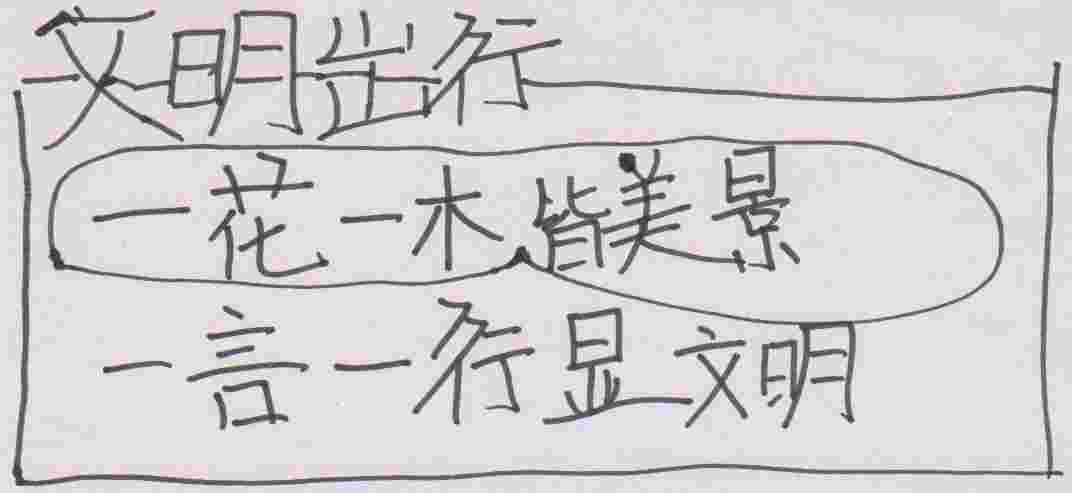 文明出行
一花一木皆美景
一言一行显文明